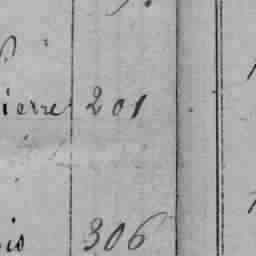 ierre 201
is 306